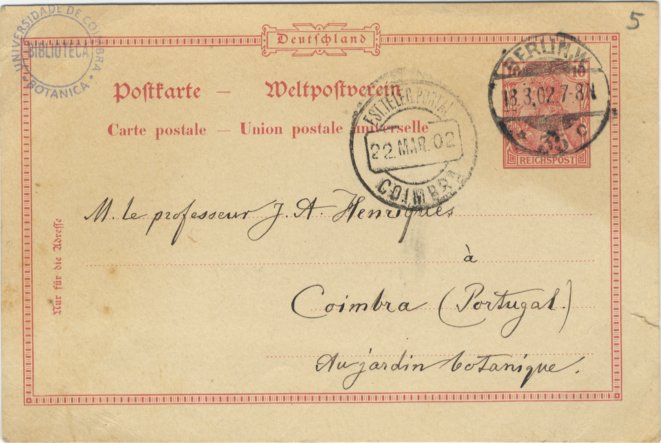 5
UNIVERSIDADE DE COIMBRA
BIBLIOTECA
BOTANICA
Deutschland
Postkarte – Weltpostverein
Carte postale – Union postale universelle
BERLIN.W.
18.3.02.7-8N
35 c
10
REICHSPOST
EST. TELEG. POSTAL
22.MAR.02
COIMBRA
M. le professeur J. A. Henriques
à
Coimbra (Portugal.)
Au jardin botanique.
Nur für die Adresse